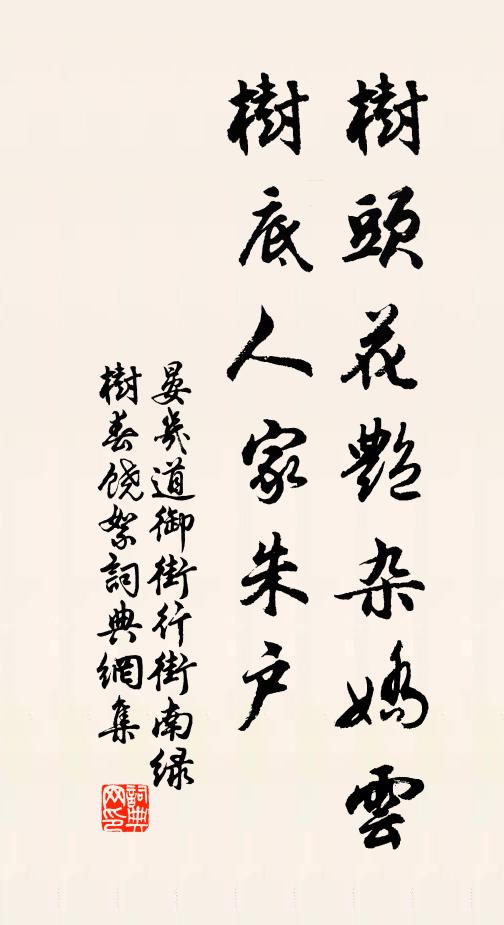 樹頭花艷杂嬌雲
樹底人家朱户
晏幾道御街行街南绿
樹春饶絮詞典網集
詞典网印